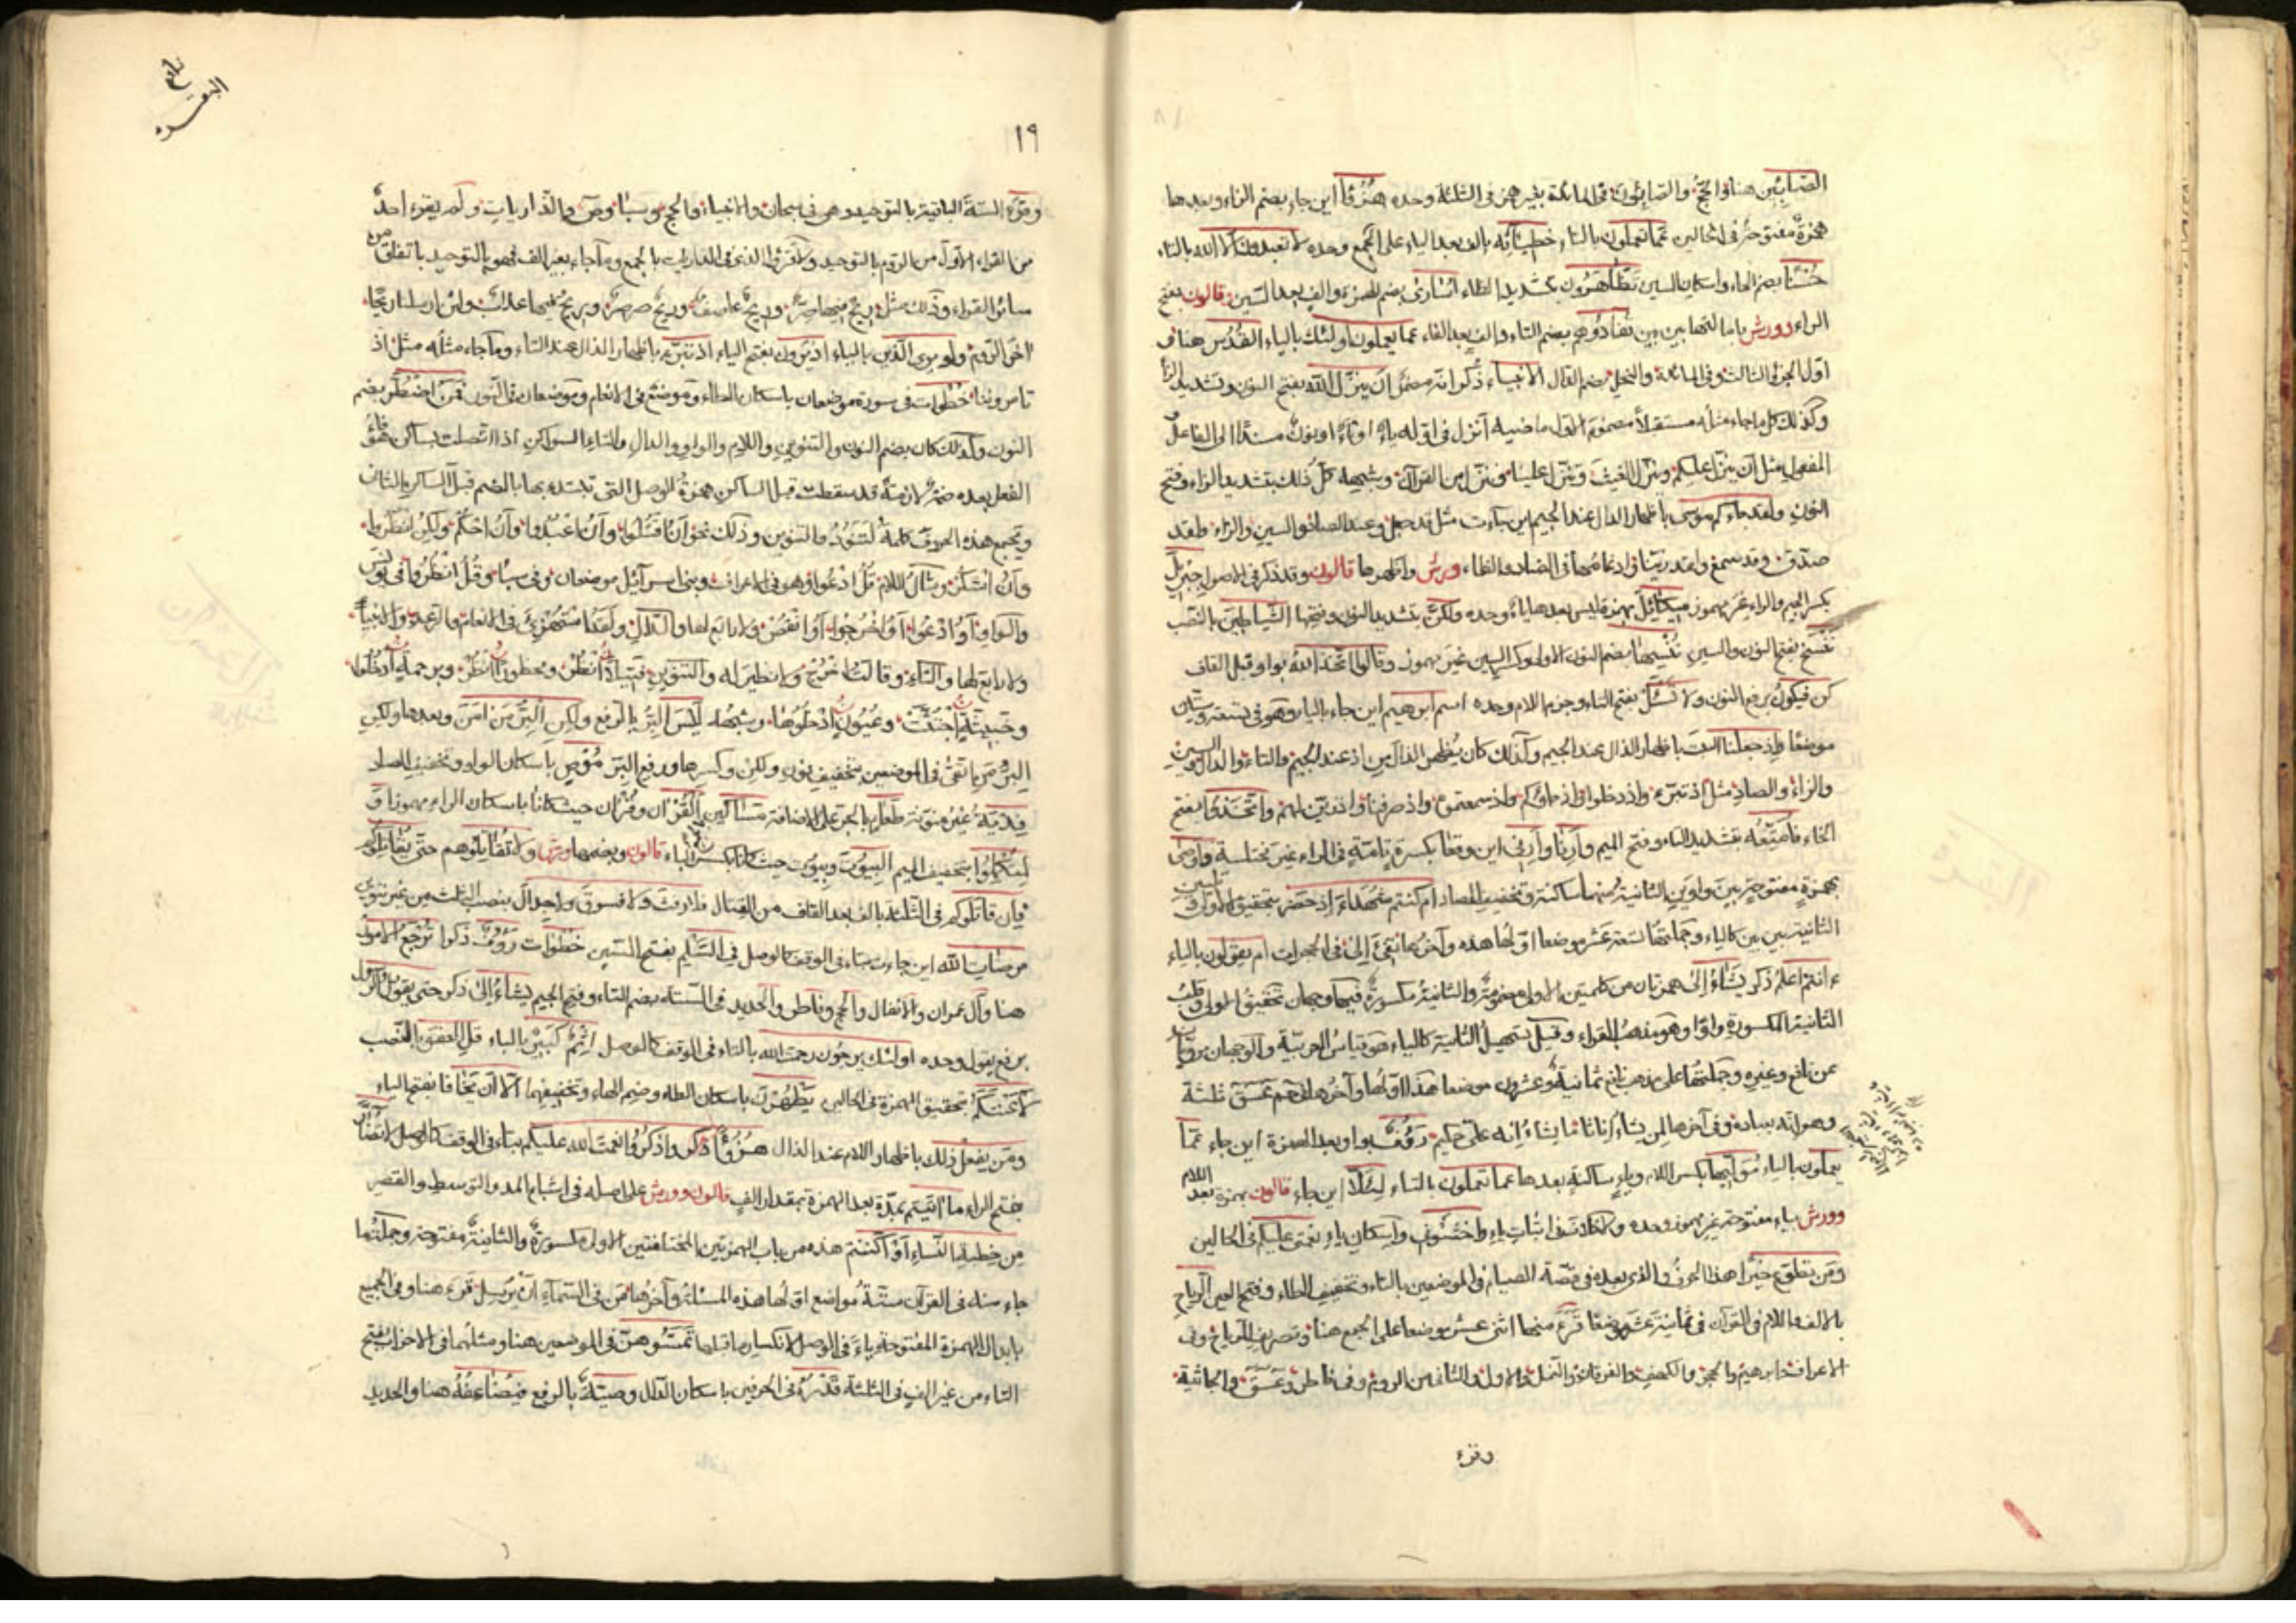 الصّابِئِين هنا وفي الحجّ والصّابئون في المائدة بغير همز في الثلثة وحده هُزُؤًا اين جاء بضم الزاء وبعدها
همزة مفتوحة في الحالين عمّا تعملون بالتاء خطيئاته بالف بعد الياء على الجمع وحده لا تعبدون الا الله بالتاء
حُسْنًا بضم الحاء واسكان السين تظّاهرون بتشديد الظاء أسارى بضم الهمزة والف بعد السّين قالون بفتح
الراء وورش بامالتها بين بين تفادوهم بضم التاء والف بعد الفاء عما يعملون اولئك بالياء القُدُس هنا في
اوّل الجزء الثالث وفي المائدة والنحل بضم الدال الانبياء ذكر انه مضمّ ان ينزّل الله بفتح النون وتشديد الزاء
وكذلك كل ما جاء مثله مستقبلا مضموم الاول ماضيه انزل في اوله ياء او تاء او نون مسندا الى الفاعل او
المفعول مثل ان ينزّل عليكم وينزّل الغيث وتنزّل علينا وننزّل من القرآن وشبهه كلّ ذلك بتشديد الزاء وفتح
النون ولقد جاءكم موسى باظهار الدال عند الجيم اين جاءت مثل قد جعل وعند الصاد والسين والزاء ولقد
صدّق وقد سمع ولقد زيّنا وادغامها في الضاد والظاء ورش واظهرها قالون وقد ذكر في الاصول جِبْرِيلَ
بكسر الجيم والراء غير مهموز ميكائِل بهمزة ليس بعدها ياء وحده ولكنّ بتشديد النون وفتحها الشّياطين بالنّصب
نَنْسَخ بفتح النون والسين نُنْسِها بضم النون الاولى وكسر السين غير مهموز وقالوا اتّخذ الله بواو قبل القاف
كن فيكونُ برفع النون ولا تَسْئَلْ بفتح التاء وجزم اللام وحده اسم ابرهيم اين جاء بالياء وهو في تسعة وستّين
موضعًا وإذ جعلنا البيت باظهار الذال عند الجيم وكذلك كان يُظهر الذال من اذ عند الجيم والتاء والدال والسين
والزاء والصاد مثل اذ تبرّء واذ دخلوا واذ جاؤكم واذ سمعتموه واذ صرفنا واذ زيّن لهم واتّخَذوا بفتح
الخاء فأُمَتِّعه بتشديد التاء وفتح الميم وأَرِنا وأَرِني اين وقعا بكسرة تامّة في الراء غير مختلسة وأوصى
بهمزة مفتوحة بين واوين الثانية منهما ساكنة وتخفيف الصاد ام كنتم شهداء إذ حضر بتحقيق الاولى وتليين
الثانية بين بين كالياء وجملتها تسعة عشر موضعا اوّلها هذه وآخرها تفيء إلى في الحجرات ام يقولون بالياء
ءانتم اعلم ذكر يشاءُ إلى همزتان من كلمتين الاولى مضمومة والثانية مكسورة فيها وجهان تحقيق الاولى وقلب
الثانية المكسورة واوًا وهو مذهب القراء وقيل بتسهيل الثانية كالياء هو قياس العربيّة والوجهان مرويّان
عن نافع وغيره وجملتها على مذهب نافع ثمانية وعشرون موضعا هذا اوّلها وآخرها في حم عسق ثلثة
وهو انّه بعباده وفي آخرها لمن يشاء إناثا ما يشاء إنه عليّ حكيم رَؤُف بواو بعد الهمزة اين جاء عمّا
يعملون بالياء مُوَلّيها بكسر اللام وياء ساكنة بعدها عما تعملون بالتاء لِئَلّا اين جاء قالون بهمزة بعد اللام
وورش بياء مفتوحة غير مهموز وحده ولا خلاف في اثبات ياء واخشوني واسكان ياء نعمتي عليكم في الحالين
ومن تطوّع خيرًا هذا الحرف والذي بعده في قصّة الصيام في الموضعين بالتاء وتخفيف الطاء وفتح العين الرّياح
بالالف واللام في القرآن في ثمانية عشر موضعًا قرء منها اثنى عشر موضعا على الجمع هنا وتصريف الرّياح وفي
الاعراف وابرهيم والحجر والكهف والفرقان والنّمل والاول والثاني من الروم وفي فاطر وعسق والجاثية
وقرء
١٩
وقرء الستّة الباقية بالتوحيد وهو في سبحان والانبياء والحج وسبأ وص والذّاريات ولم يقرء احدٌ
من القراء الاول من الروم بالتوحيد ولا قرؤا الذي في الذاريات بالجمع وما جاء بغير الف فهو بالتوحيد باتفاق من
سائر القراء وذلك مثل ريح فيها صرّ وريح عاصف وريح صرصر وبريح فيها عذاب ولئن ارسلنا ريحًا
اخر الرّوم ولو يرى الّذين بالتاء اذ يَرون بفتح الياء اذ تبرّء باظهار الذال عند التاء وما جاء مثله مثل اذ
تأمروننا خُطْوات في سورة موضعان باسكان الطاء وموضع في الانعام وموضعان في النّور فمن اضطرّ بضم
النون وكذلك كان يضم النون والتنوين واللام والواو والدال والتاء السواكن اذا اتّصلت بساكن هو فاء
الفعل بعده ضمّة لازمة قد سقطت قبل الساكن همزة الوصل التي تبتدء بها بالضم قبل الساكن الثاني
ويجمع هذه الحروف كلمة لتنود والتنوين وذلك نحو أنُ اقتلوا وأنُ اعبدوا وأنُ احكم ولكنُ انظر
وأنُ اشكر ومثال اللام قلُ ادعوا وهو في الاعراف وبني اسرآئيل موضعان وفي سبأ وقلُ انظروا في يونس
والواو أوُ ادعوا أوُ اخرجوا أوُ انقص ولا رابع لها والدّال ولقدُ استهزئ في الانعام والرّعد والانبياء
ولا رابع لها والتّاء وقالتُ اخرج ولا نظير له والتنوين فتيلًا انظر ومحظورًا انظر وبرحمة ادخلوا
وخبيثةٍ اجتثّت وعيونٍ ادخلوها وشبهه ليس البرّ بالرفع ولكنِ البِرُّ مَن آمن وبعدها ولكن
البرّ من اتّقى في الموضعين بتخفيف نون ولكن وكسرها ورفع البرّ مُوصٍ باسكان الواو وتخفيف الصاد
فِدْيةُ غير منونة طعامِ بالجر على الاضافة مساكين القُرْآن وقُرْآن حيث كانا باسكان الراء مهموزا و
لِتُكْمِلوا بتخفيف الميم البيوت وبيوت حيث كانا بكسر الباء قالون وبضمها ورش ولا تقاتلوهم حتى يقاتلوكم
فإن قاتلوكم في الثلثة بالف بعد القاف من القتال فلا رفثَ ولا فسوقَ ولا جدالَ بنصب الثلث من غير تنوين
مرضات الله اين جاءت بتاء في الوقف كالوصل في السَّلم بفتح السّين خُطْوات رَؤُف ذكرا تُرجَع الامور
هنا وآل عمران والانفال والحج وفاطر والحديد في الستّة بضم التاء وفتح الجيم يشاءُ إلى ذكر حتى يقولُ الرسول
برفع يقول وحده اولئك يرجون رحمت الله بالتاء في الوقف كالوصل اثم كبير بالباء قل العفو بالنصب
لأعنتكم بتحقيق الهمزة في الحالين يَطْهُرْن باسكان الطاء وضم الهاء وتخفيفها الّا أن يَخافا بفتح الياء
ومن يفعل ذلك باظهار اللام عند الذال هُزُؤًا ذكر واذكروا نعمت الله عليكم بتاء في الوقف كالوصل لا تضارَّ
بفتح الراء ما آتيتم بمدّة بعد الهمزة بمقدار الف قالون وورش على اصله في اشباع المد والتوسط والقصر
من خطبة النّساء أو اكننتم هذه من باب الهمزتين المختلفتين الاولى مكسورة والثانية مفتوحة وجملتها
جاء منه في القرآن ستّة مواضع اوّلها هذه المسئلة وآخرها مَن في السّماء أن يرسل قرء هنا وفي الجميع
بابدال الهمزة المفتوحة ياءً في الوصل لانكسار ما قبلها تَمَسّوهنّ في الموضعين هنا ومثلهما في الاحزاب بفتح
التاء من غير الف في الثلثة قَدْرُه في الحرفين باسكان الدّال وصيّةٌ بالرفع فيضاعفُه هنا والحديد